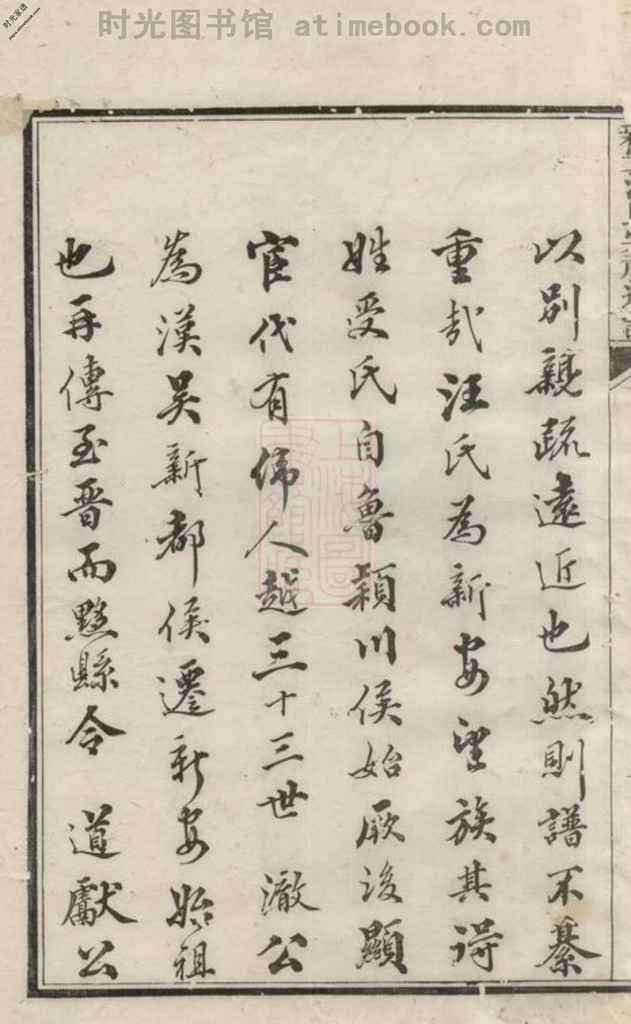 时光图书馆 atimebook.com
以別親疏遠近也然則譜不綦
重哉汪氏為新安望族其得
姓受氏自魯潁川侯始厥後顯
宦代有偉人越三十三世 澈公
為漢吳新都侯遷新安始祖
也再傳至晋而黟縣令 道獻公